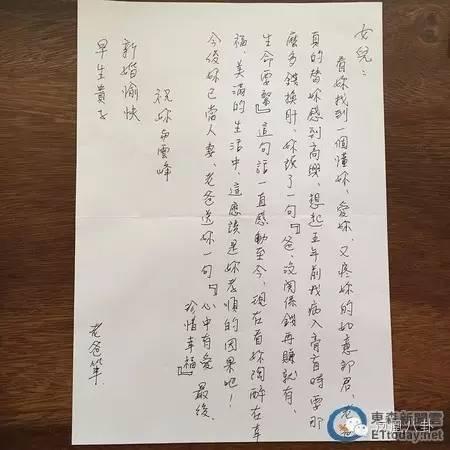 女兒：
看妳找到一個懂妳、愛妳、又疼妳的如意郎君，老爸
真的替妳感到高興，想起五年前我病入膏肓時要那
麼多錢換肝，妳說了一句『爸，沒關係錢再賺就有，
生命要緊』這句話一直感動至今，現在看妳陶醉在幸
福、美滿的生活中，這應該是妳孝順的因果吧！
今後妳已當人妻，老爸送妳一句『心中有愛
珍惜幸福』最後
祝妳與雲峰
新婚愉快
早生貴子
老爸筆.
東森新聞雲
ETtoday.net
凤凰八卦